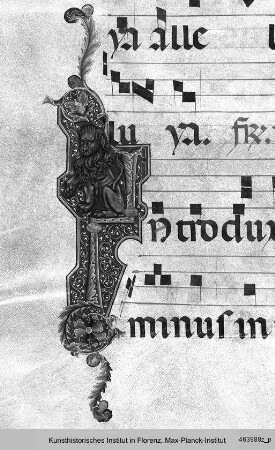 ya alle
lu ya. fix:
Ntrodux
minus in
Kunsthistorisches Institut in Florenz, Max-Planck-Institut 463988z_p